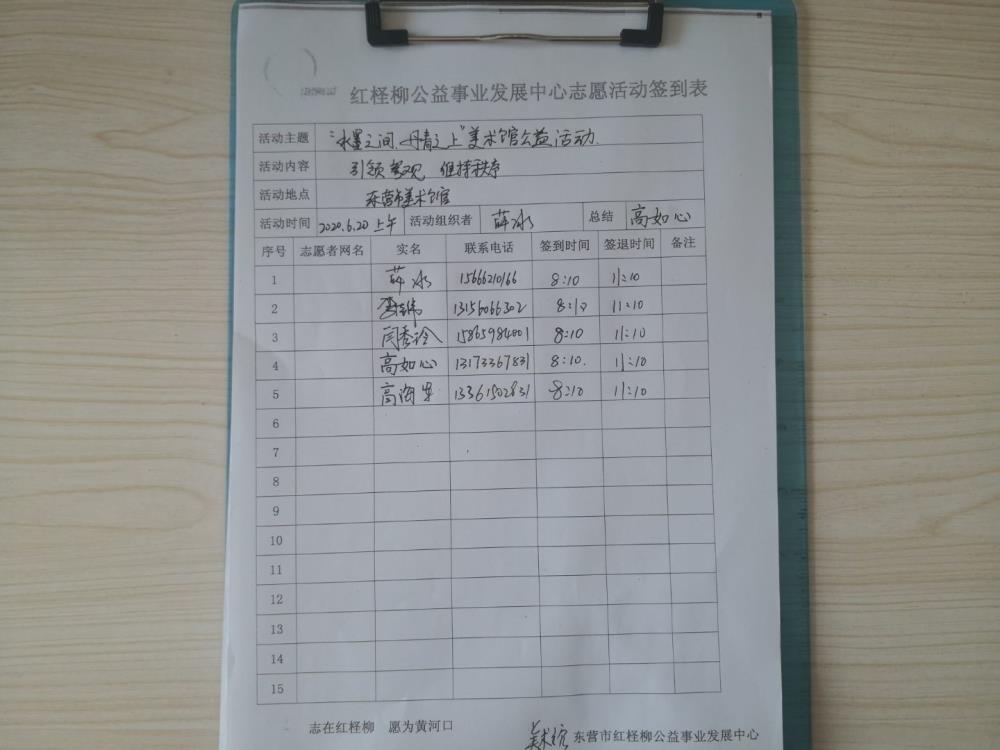 红柽柳公益事业发展中心志愿活动签到表
活动主题 "水墨之间、丹青之上"美术馆公益活动.
活动内容 引领参观 维持秩序
活动地点 东营市美术馆
活动时间 2020.6.20上午 活动组织者 薛冰 总结 高如心
序号 志愿者网名 实名 联系电话 签到时间 签退时间 备注
1 薛冰 15666210166 8:10 11:10
2 13156066302 8:10 11:10
3 闫秀玲 15865984001 8:10 11:10
4 高如心 13173367831 8:10. 11:10
5 高海 13361502831 8:10 11:10
6
7
8
9
10
11
12
13
14
15
志在红柽柳 愿为黄河口
东营市红柽柳公益事业发展中心